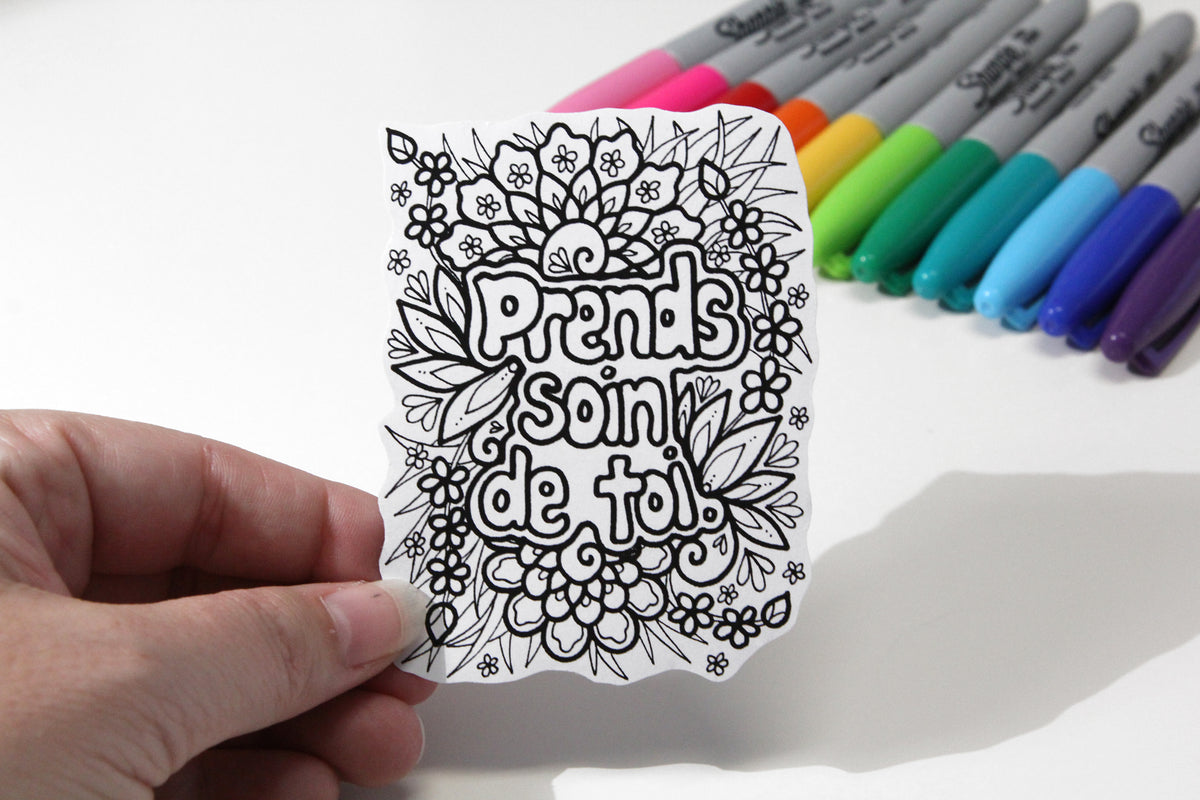 Prends
soin
de toi.
Sharpie
Sharpie
Sharpie